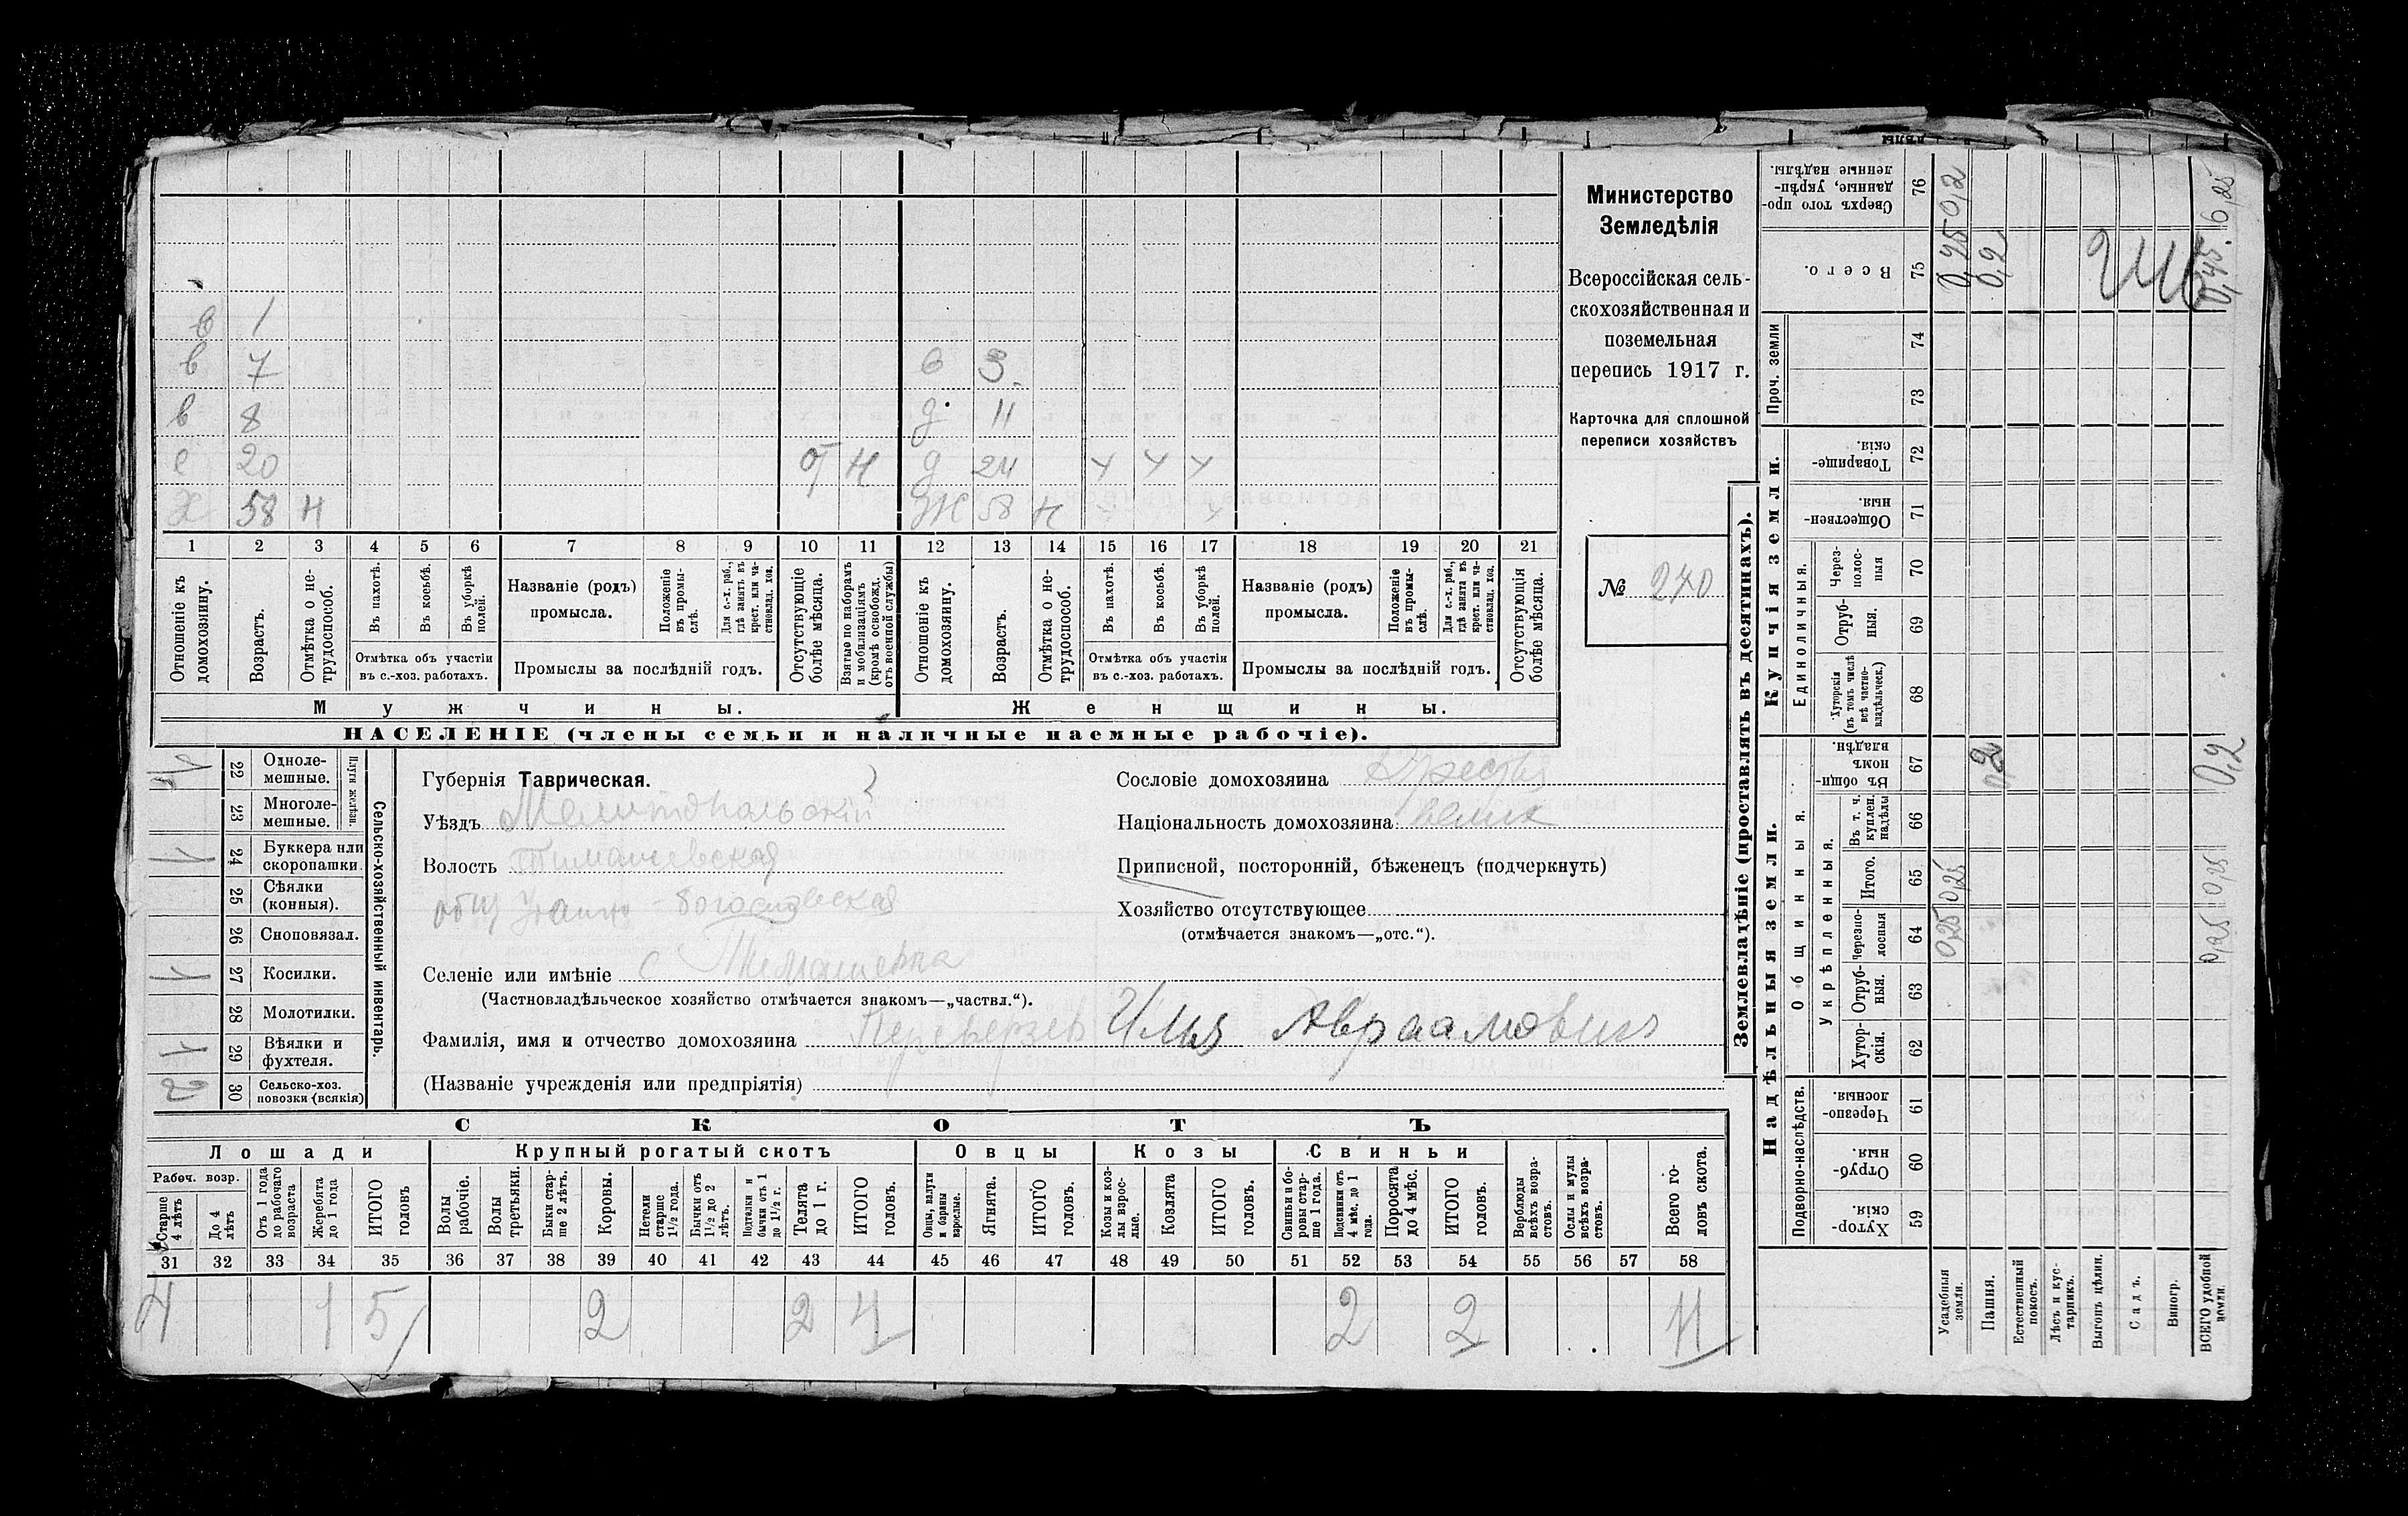 в 1
в 7 в 3
в 8 д 11
с 20 от н д 24 х х х
х 58 н дж 58 н х х
1 2 3 4 5 6 7 8 9 10 11 12 13 14 15 16 17 18 19 20 21
Отношеніе къ домохозяину.
Возрастъ.
Отмѣтка о не-
трудоспособ.
Въ пахотѣ.
Въ косьбѣ.
Въ уборкѣ полей.
Отмѣтка объ участіи
въ с.-хоз. работахъ.
Названіе (родъ)
промысла.
Положеніе въ промы-
слѣ.
Для с.-х. раб.,
гдѣ занятъ въ
крест. или ча-
стновлад. хоз.
Промыслы за послѣдній годъ.
Отсутствующіе
болѣе мѣсяца.
Взятые по наборамъ
и мобилизаціямъ
(кромѣ освобожд.
отъ военной службы)
Отношеніе къ
домохозяину.
Возрастъ.
Отмѣтка о не-
трудоспособ.
Въ пахотѣ.
Въ косьбѣ.
Въ уборкѣ полей.
Отмѣтка объ участіи
въ с.-хоз. работахъ.
Названіе (родъ)
промысла.
Положеніе въ промы-
слѣ.
Для с.-х. раб.,
гдѣ занята въ
крест. или ча-
стновлад. хоз.
Промыслы за послѣдній годъ.
Отсутствующія
болѣе мѣсяца.
Мужчины. Женщины.
НАСЕЛЕНІЕ (члены семьи и наличные наемные рабочіе).
Министерство
Земледѣлія
Всероссійская сель-
скохозяйственная и
поземельная
перепись 1917 г.
Карточка для сплошной
переписи хозяйствъ
№ 240
Сельско-хозяйственный инвентарь.
Плуги желѣзн.
1 22 Одноле-
мешные.
23 Многоле-
мешные.
1 24 Буккера или
скоропашки.
25 Сѣялки
(конныя).
26 Сноповязал.
1 27 Косилки.
28 Молотилки.
1 29 Вѣялки и
фухтеля.
2 30 Сельско-хоз.
повозки (всякія)
Губернія Таврическая.
Уѣздъ Мелитопольскій
Волость Тимашевская
общ -Богословская
Селеніе или имѣніе с Тимашевка
(Частновладѣльческое хозяйство отмѣчается знакомъ—„частвл.“).
Фамилія, имя и отчество домохозяина Переверзев Илья Авраамович
(Названіе учрежденія или предпріятія)
Сословіе домохозяина Крестья
Національность домохозяина велик
Приписной, посторонній, бѣженецъ (подчеркнуть)
Хозяйство отсутствующее
(отмѣчается знакомъ—„отс.“).
СКОТЪ
Лошади Крупный рогатый скотъ Овцы Козы Свиньи
Рабоч. возр.
Старше
4 лѣтъ
До 4
лѣтъ
Отъ 1 года
до рабочаго
возраста
Жеребята
до 1 года
ИТОГО
головъ
Волы
рабочіе.
Волы
третьяки.
Быки стар-
ше 2 лѣтъ.
Коровы.
Нетели
старше
1½ года.
Бычки отъ
1½ до 2
лѣтъ.
Подтелки и
бычки отъ 1
до 1½ г.
Телята
до 1 г.
ИТОГО
головъ.
Овцы, валухи
и бараны
взрослые.
Ягнята.
ИТОГО
головъ.
Козы и коз-
лы взрос-
лые.
Козлята
ИТОГО
головъ.
Свиньи и бо-
ровы стар-
ше 1 года.
Подсвинки отъ
4 мѣс. до 1
года.
Поросята
до 4 мѣс.
ИТОГО
головъ.
Верблюды
всѣхъ возра-
стовъ.
Ослы и мулы
всѣхъ возра-
стовъ.
Всего го-
ловъ скота.
31 32 33 34 35 36 37 38 39 40 41 42 43 44 45 46 47 48 49 50 51 52 53 54 55 56 57 58
4 1 5 2 2 4 2 2 11
Землевладѣніе (проставлять въ десятинахъ).
Надѣльныя земли. Купчія земли. Проч. земли
Подворно-наслѣдств. Общинныя. Единоличныя.
Укрѣпленныя.
Хутор-
скія. 59
Отруб-
ныя. 60
Черезпо-
лосныя. 61
Хутор-
скія. 62
Отруб-
ныя. 63
Черезпо-
лосныя 64
Итого. 65
Въ т. ч.
куплен.
надѣлы 66
Въ общи-
номъ
владѣн. 67
Хуторскія
(въ томъ числѣ
всѣ частно-
владѣльческ.) 68
Отруб-
ныя. 69
Через-
полос-
ныя 70
Обществен-
ныя. 71
Товарище-
скія. 72
73
74
Всего. 75
Сверхъ того про-
данные, укрѣп-
ленные надѣлы. 76
Усадебныя
земли. 0,25 0,25 0,45 0,2
Пашня. 0,2 0,2
Естественный
покосъ.
Лѣсъ и кус-
тарникъ.
Выгонъ цѣлин.
Садъ.
Виногр.
ВСЕГО удобной
земли. 0,25 0,25 0,2 0,45. 6,25